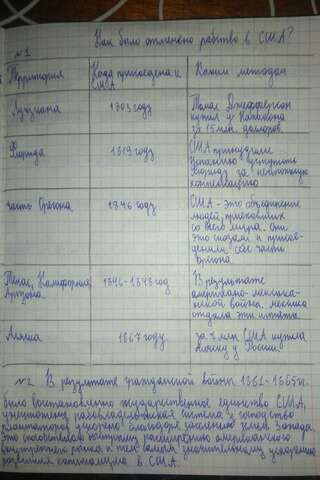 Как было отменено рабство в США?
№1
Территория
Когда присоединена к США
Каким методом
Луизиана
1803 году
Томас Джефферсон
купил у Наполеона
за 15 млн. долларов.
Флорида
1819 году
США принудили
Испанию уступить
Флориду за
компенсацию
часть Орегона
1846 году
США - это объединение
людей, приехавших
со всего мира. Они
это сказали и присое-
динили себе часть
Орегона
Техас, Калифорния,
Аризона
1846-1848 год
В результате
американо-мексика-
нской войны. Мексика
отдала эти штаты.
Аляска
1867 году
за 7 млн США купила
Аляску у России.
№2 В результате гражданской войны 1861-1865г.
было восстановлено государственное единство США,
уничтожена рабовладельческая система и господство
плантаторов, ускорено благодаря заселению земель Запада.
это способствовало быстрому расширению американского
внутреннего рынка и тем самым значительному ускорению
развития капитализма в США.